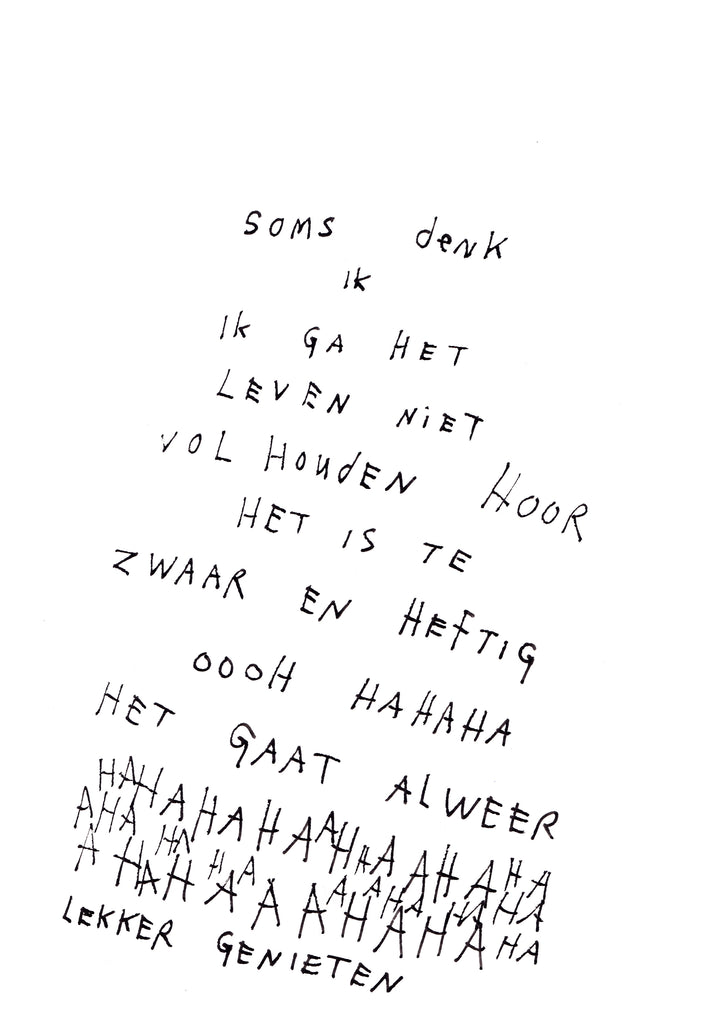 SOMS denk
IK
IK GA HET
LEVEN NiET
VOL HOUdEN HOOR
HET IS TE
ZWAAR EN HEFTIG
OOOH HAHAHA
HET GAAT ALWEER
HAHAHAHAHAAHAAAHAHA
AHA HA HA AAHA HAHA
A HAHAAAAHAHAHA
LEKKER GENIETEN